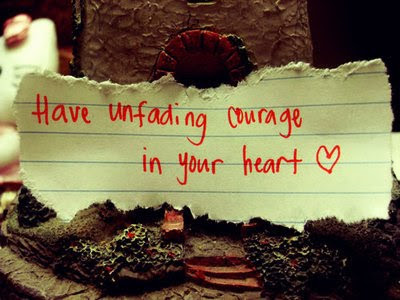 Have unfading courage
in your heart ♡